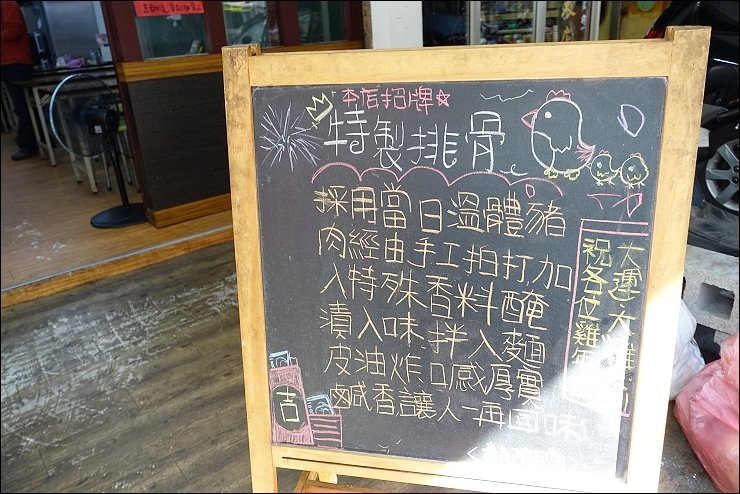 本店招牌☆
特製排骨
採用當日溫體豬
肉經由手工拍打,加
入特殊香料醃
漬入味,拌入麵
皮油炸,口感厚實
鹹香讓人一再回味
祝各位雞年
大運大雞大
吉